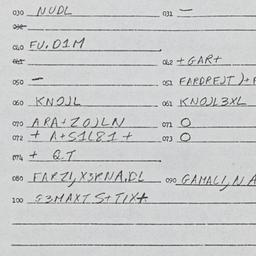 030 NUDL 031 —
032
040 FU.D1M
041 042 +GAR+
050 — 051 FARDREJT)+F
060 KNOJL 061 KNOJL3XL
070 ARA+ZOJLN 071 O
072 + A+S1L81+ 073 O
074 + Q.T
080 FARZL,X3RNA,DL 090 GAMALI,NA
100 S3MAXT S+TIX+